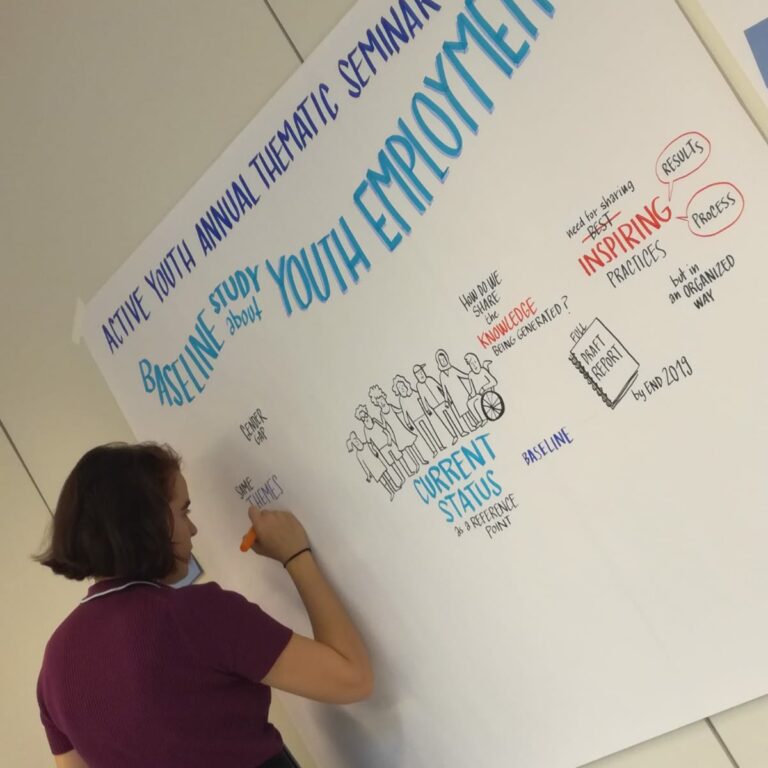 ACTIVE YOUTH ANNUAL THEMATIC SEMINAR
BASELINE STUDY about YOUTH EMPLOYMENT
need for sharing
BEST
INSPIRING
PRACTICES
RESULTS
PROCESS
but in
an ORGANIZED
WAY
HOW DO WE
SHARE
the
KNOWLEDGE
BEING GENERATED?
FULL
DRAFT
REPORT
by END 2019
GENDER
GAP
SAME
THEMES
CURRENT
STATUS
as a REFERENCE
POINT
BASELINE